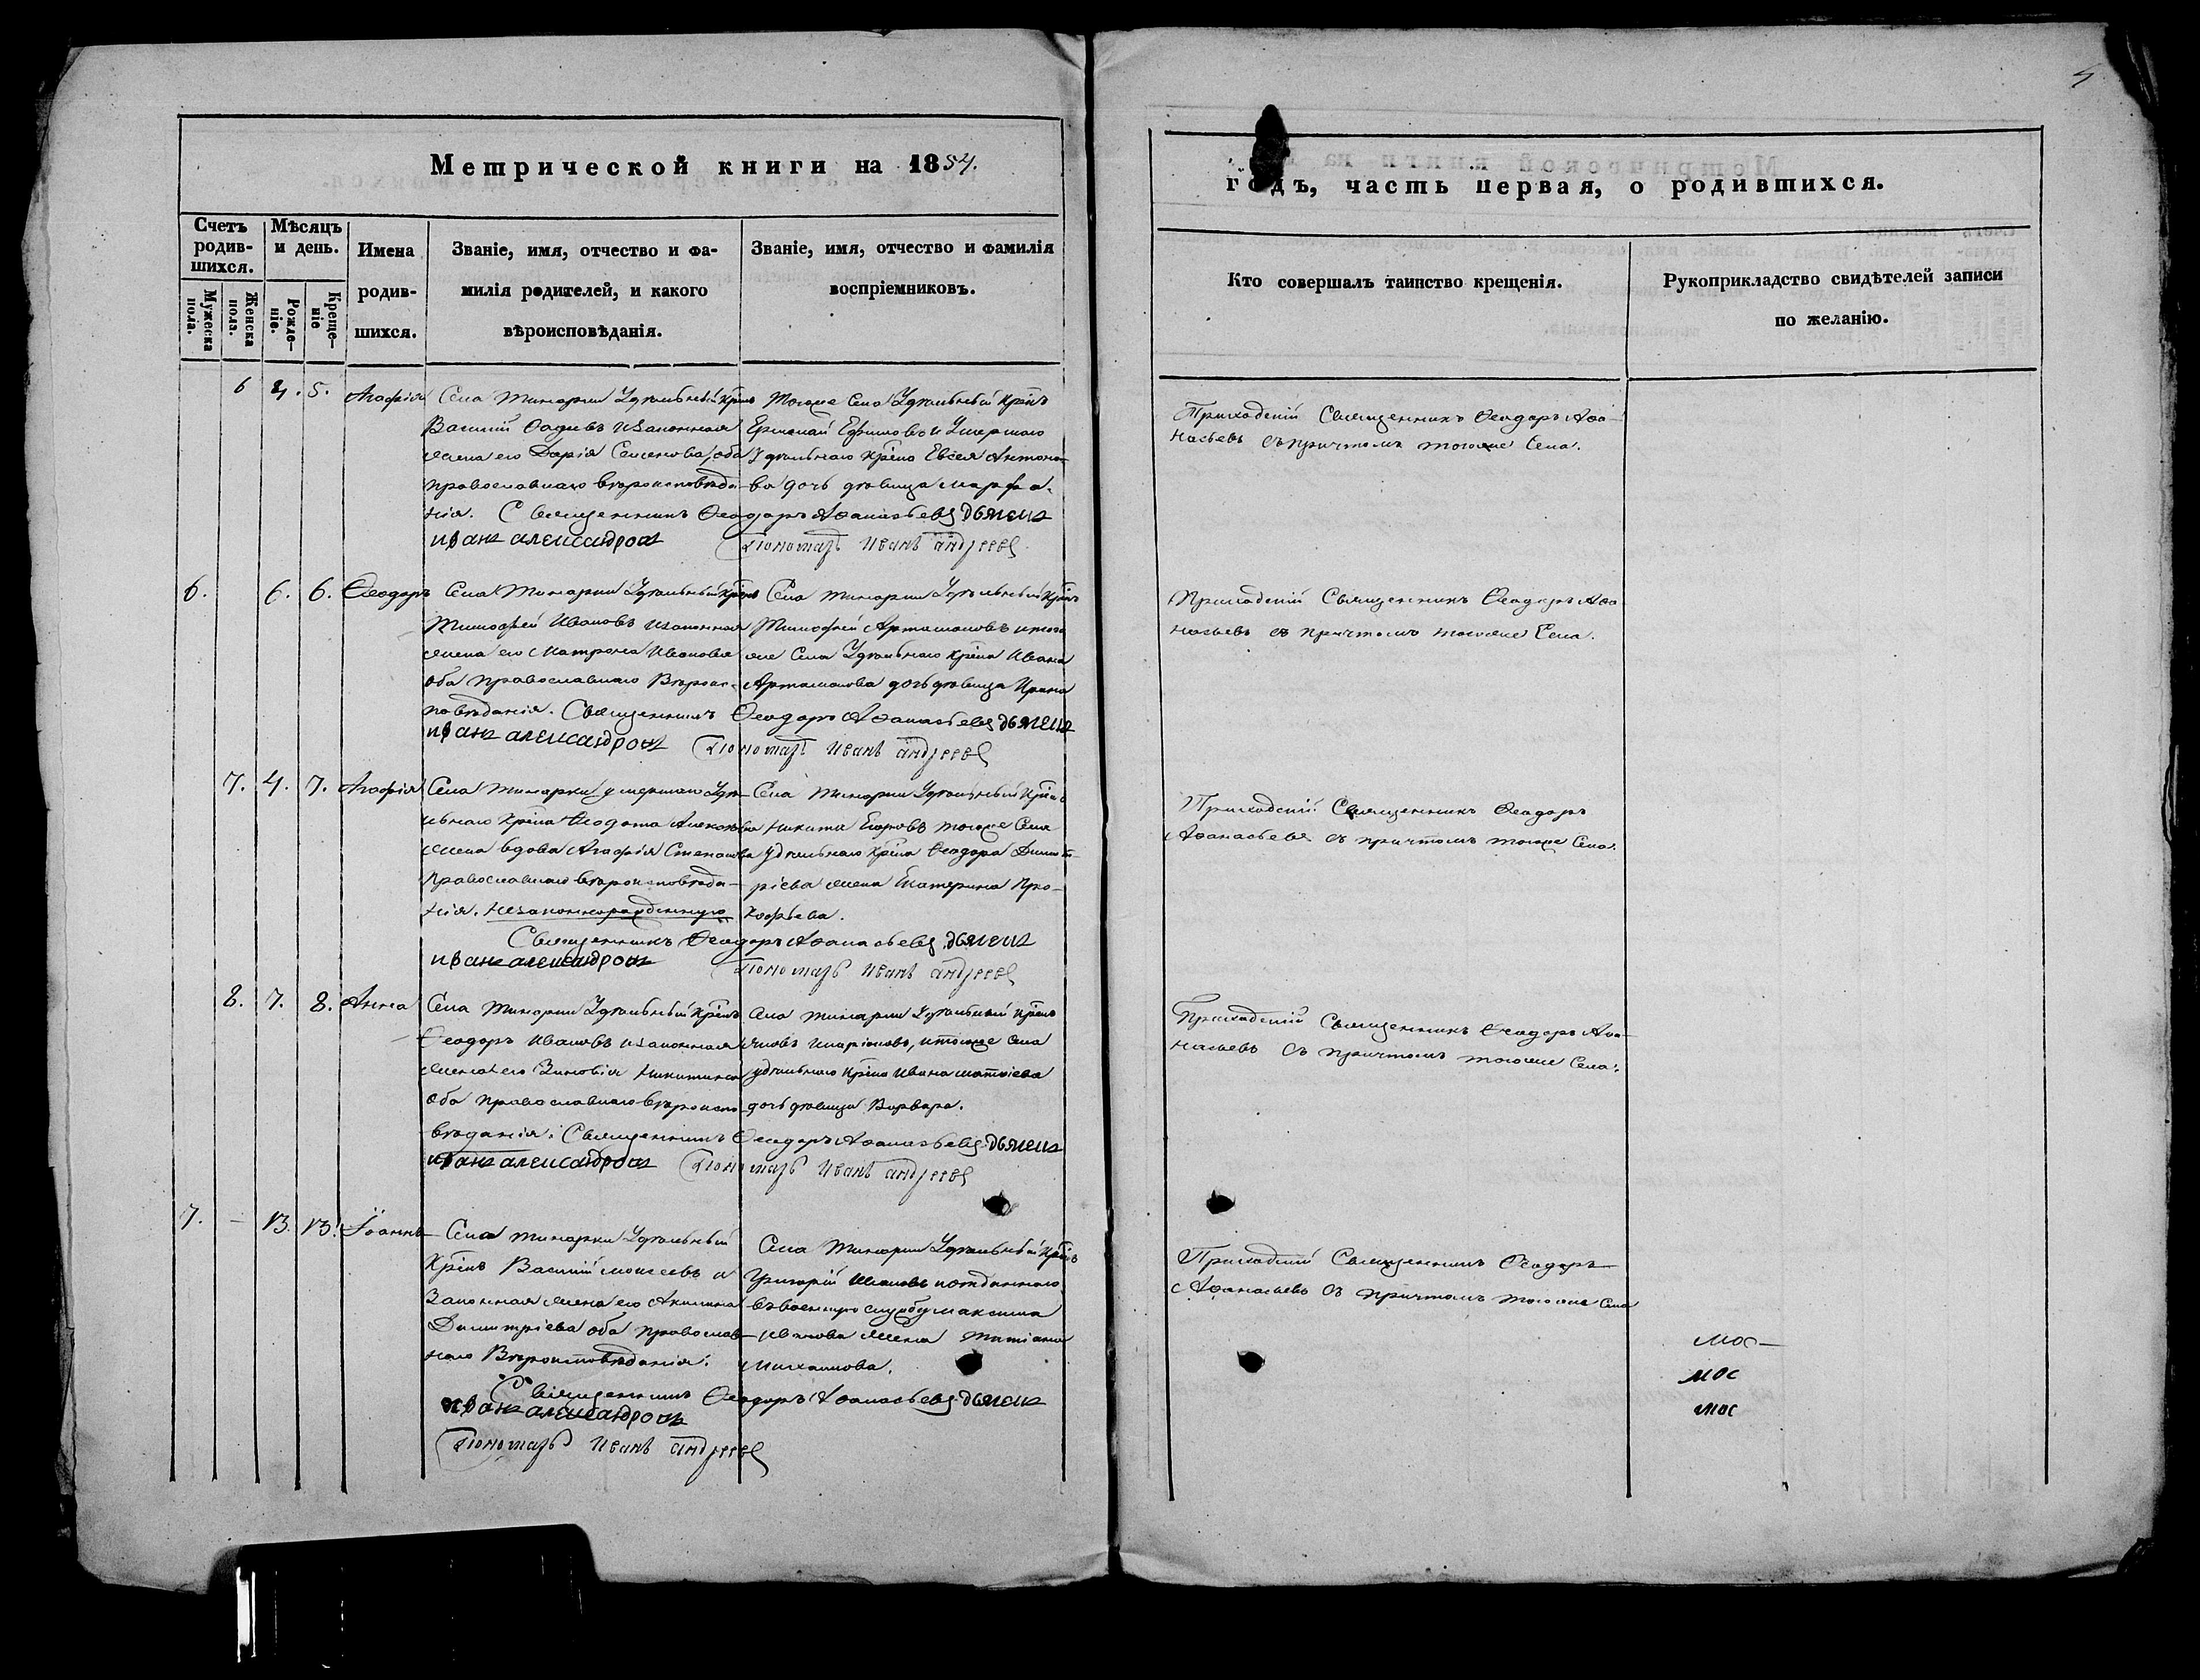 5
Метрической книги на 1854.
годъ, часть первая, о родившихся.
Счетъ родив-шихся.
Мѣсяцъ и день.
Мужеска пола.
Женска пола.
Рожде-ніе.
Креще-ніе
Имена родив-шихся.
Званіе, имя, отчество и фа-
милія родителей, и какого
вѣроисповѣданія.
Званіе, имя, отчество и фамилія
воспріемниковъ.
Кто совершалъ таинство крещенія.
Рукоприкладство свидѣтелей записи
по желанію.
6 4. 5. Агафія
Села Тинарки Удѣльный крѣнъ
Василій Фадѣевъ и законная
жена его Дарія Семенова, оба
православнаго вѣроисповѣда-
нія. Священникъ Ѳеодоръ Аѳанасьевъ дьячекъ
иванъ александровъ Пономарь Иванъ андреевъ
Тогоже Села Удѣльный крѣнъ
Ермолай Ефимовъ и Умершаго
Удѣльнаго крѣна Евсея Антоно-
ва дочь дѣвица Марфа.
Приходскій Священникъ Ѳеодоръ Аѳа-
насьевъ съ причтомъ тогоже Села.
6. 6. 6. Ѳеодоръ
Села Тинарки Удѣльный крѣнъ
Тимофей Ивановъ и законная
жена его Матрона Иванова
оба православнаго Вѣроис-
повѣданія. Священникъ Ѳеодоръ Аѳанасьевъ дьячекъ
иванъ александровъ Пономарь Иванъ андреевъ
Села Тинарки Удѣльный крѣнъ
Тимофей Артамоновъ и того
же Села Удѣльнаго крѣна Ивана
Артамонова дочь дѣвица Ирина
Приходскій Священникъ Ѳеодоръ Аѳа-
насьевъ съ причтомъ тогоже Села.
7. 4. 7. Агафія
Села Тинарки умершаго Удѣ-
льнаго крѣна Ѳеодота Алексѣева
жена вдова Агафія Степанова
Православнаго вѣроисповѣда-
нія. незаконнорожденную
Священникъ Ѳеодоръ Аѳанасьевъ дьячекъ
иванъ александровъ Пономарь Иванъ андреевъ
Села Тинарки Удѣльный крѣнъ
Никита Егоровъ тогоже Села
удѣльнаго крѣна Ѳеодора Димит-
ріева жена Екатерина Про-
кофьева.
Приходскій Священникъ Ѳеодоръ
Аѳанасьевъ съ причтомъ тогоже Села.
8. 7. 8. Анна
Села Тинарки Удѣльный крѣнъ
Ѳеодоръ Ивановъ и законная
жена его Зиновія Никитина
оба православнаго вѣроиспо-
вѣданія. Священникъ Ѳеодоръ Аѳанасьевъ дьячекъ
иванъ александровъ Пономарь Иванъ андреевъ
Села Тинарки Удѣльный крѣнъ
Яковъ Иларіоновъ, и тогоже села
удѣльнаго крѣна Ивана Матвіева
дочь дѣвица Варвара.
Приходскій Священникъ Ѳеодоръ Аѳа-
насьевъ съ причтомъ тогоже Села.
7. - 13. 13. Іоаннъ
Села Тинарки Удѣльный
крѣнъ Василій Моисеевъ и
Законная жена его Акилина
Димитріева оба православ-
наго Вѣроисповѣданія.
Священникъ Ѳеодоръ Аѳанасьевъ дьячекъ
иванъ александровъ
Пономарь Иванъ андреевъ
Села Тинарки Удѣльный крѣнъ
Григорій Ивановъ и отданнаго
въ военную службу Максима
Иванова жена Татіана
Михайлова.
Приходскій Священникъ Ѳеодоръ
Аѳанасьевъ съ причтомъ тогоже Села